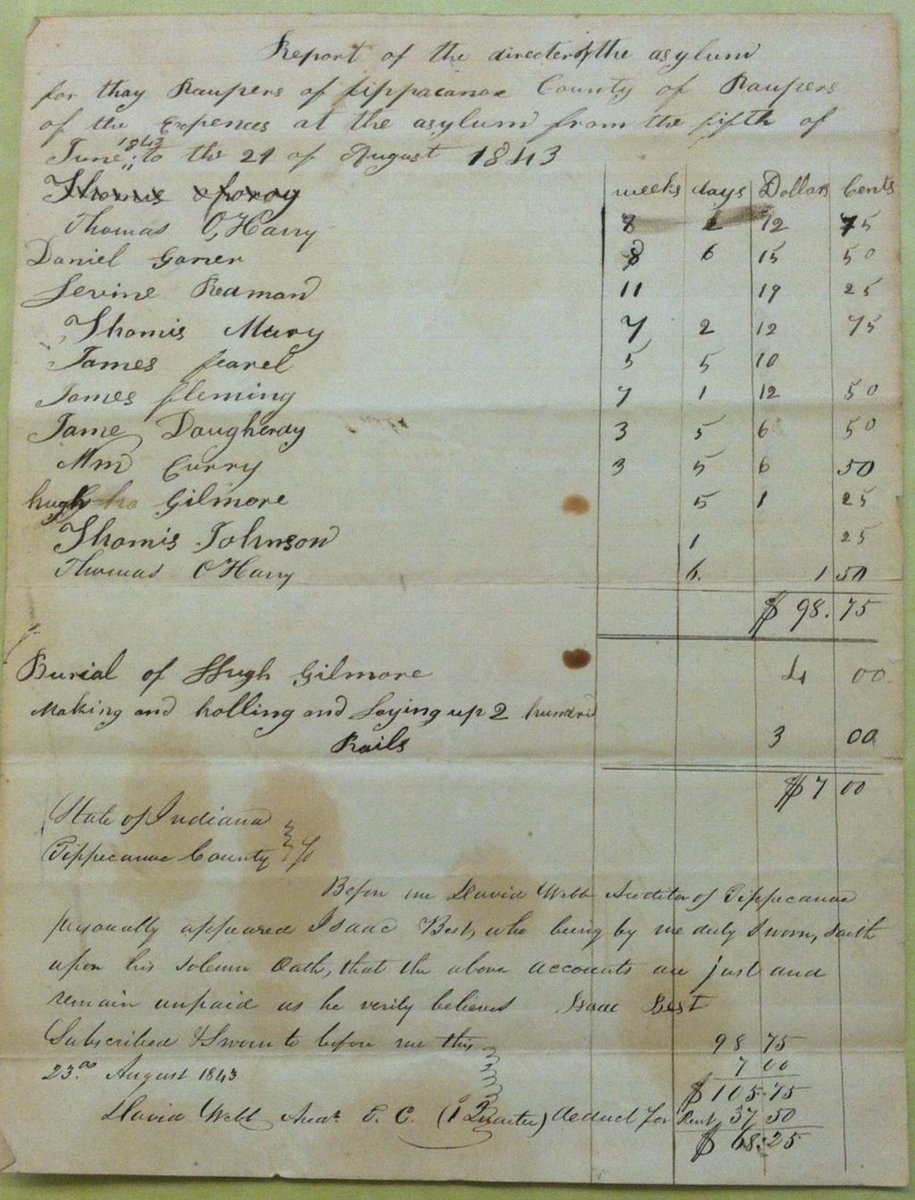 Report of the directer of the asylum
for thay Paupers of tippacanoe County of Paupers
of the Expences at the asylum from the fifth of
June 1843 to the 21 of August 1843
weeks days Dollars Cents
Thomas O,Harry 8 2 12 75
Daniel Garner 8 6 15 50
Levine Redman 11 19 25
Thomis Mury 7 2 12 75
James 5 5 10
James fleming 7 1 12 50
Jame Daugherdy 3 5 6 50
Wm Curry 3 5 6 50
hugh Gilmore 5 1 25
Thomis Johnson 1 25
Thomas O'Harry 6 1 50
$ 98.75
Burial of Hugh Gilmore 4 00
Making and holling and Laying up 2 hundred
Rails 3 00
$ 7 00
State of Indiana
Tippecanoe County
Before me David Webb Auditor of Tippecanoe
personally appeared Isaac Best, who being by me duly sworn, saith
upon his solemn Oath, that the above accounts are just and
remain unpaid as he verily believes Isaac Best
Subscribed & Sworn to before me this 98 75
23rd August 1843 7 00
$ 105.75
David Webb Audr T. C. (1 Quarter) deduct for Rent 37 50
$ 68.25